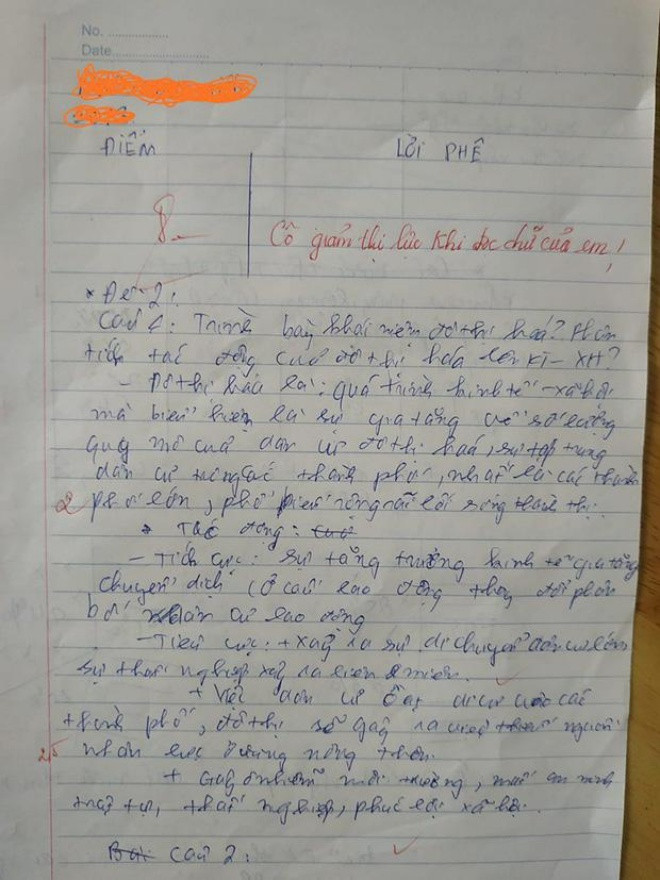 No. ................
Date........................
ĐIỂM
LỜI PHÊ
8.-
Cô giảm thị lực khi đọc chữ của em!
* Đề 2:
Câu 1: Trình bày khái niệm đô thị hoá? Phân
tích tác động của đô thị hóa lên KT - XH?
- Đô thị hoá là: quá trình kinh tế - xã hội
mà biểu hiện là sự gia tăng về số lượng
quy mô của dân cư đô thị hoá, sự tập trung
dân cư trong các thành phố, nhất là các thành
2 phố lớn, phổ biến rộng rãi lối sống thành thị.
* Tác động:
- Tích cực: sự tăng trưởng kinh tế gia tăng
chuyển dịch cơ cấu lao động thay đổi phân
bố dân cư lao động
- Tiêu cực: + xảy ra sự di chuyển dân cư lớn
sự thất nghiệp xảy ra
+ Việc dân cư ồ ạt di cư vào các
thành phố, đô thị sẽ gây ra nguồn
2,5 nhân lực ở vùng nông thôn.
+ Gây ô nhiễm môi trường, mất an ninh
trật tự, thất nghiệp, phúc lợi xã hội.
Bài Câu 2: